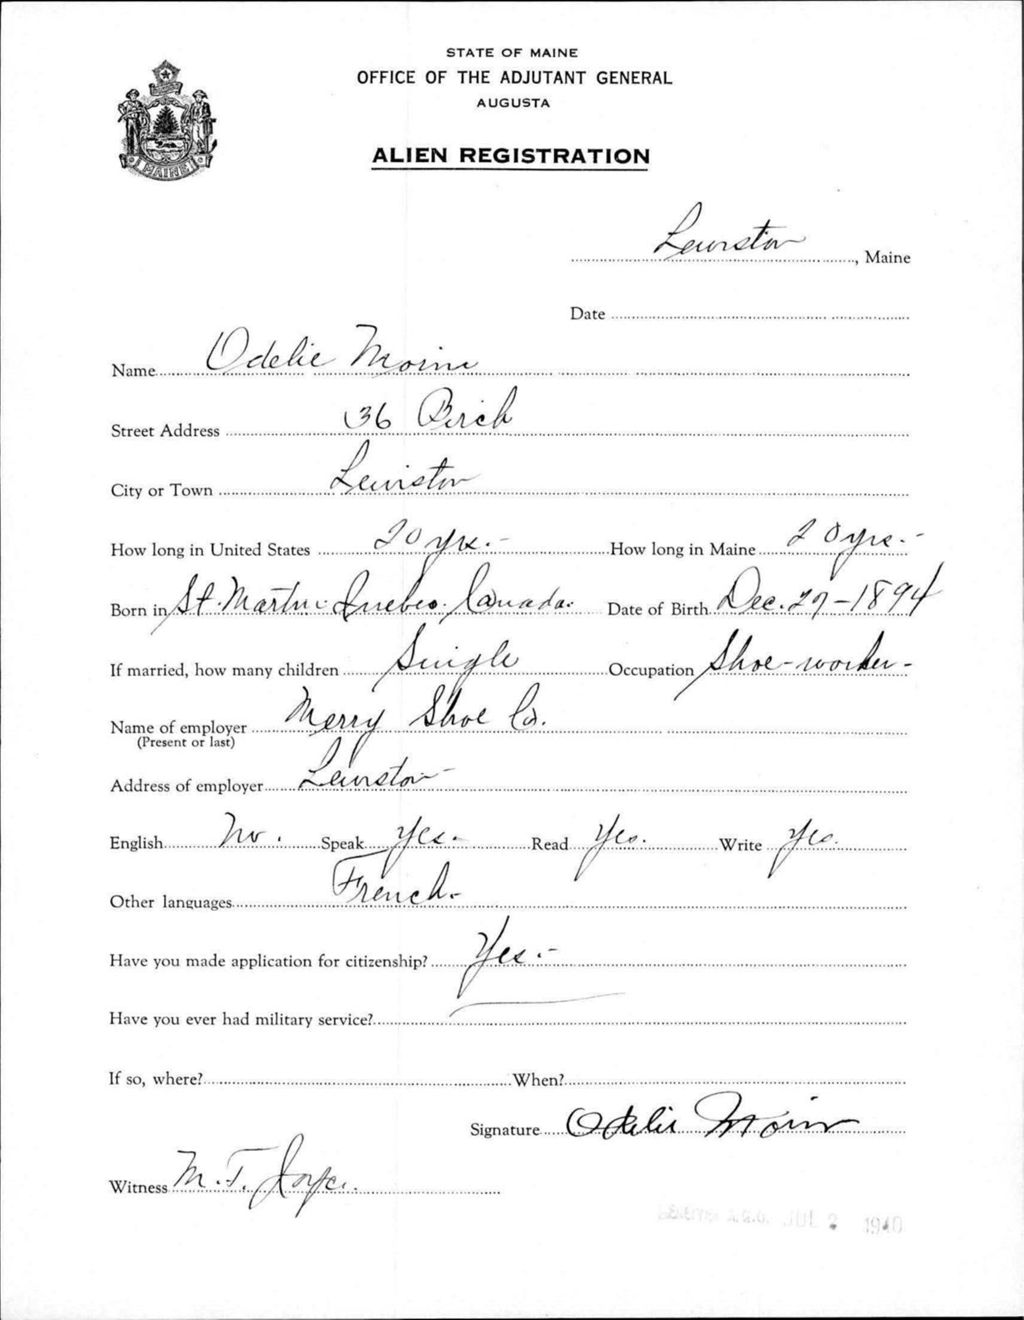 STATE OF MAINE
OFFICE OF THE ADJUTANT GENERAL
AUGUSTA
ALIEN REGISTRATION
MAINE
Lewiston, Maine
Date
Name Odelie Morin
Street Address 36 Birch
City or Town Lewiston
How long in United States 20 yrs. - How long in Maine 20 yrs. -
Born in St. Martin Quebec Canada. Date of Birth Dec. 27 - 1894
If married, how many children Single Occupation Shoe-worker -
Name of employer Merry Shoe Co.
(Present or last)
Address of employer Lewiston -
English No. Speak Yes - Read Yes. Write Yes.
Other languages French -
Have you made application for citizenship? Yes. -
Have you ever had military service? —
If so, where? When?
Signature Odelie Morin
Witness M. T. Joyce.
JUL 2 1940